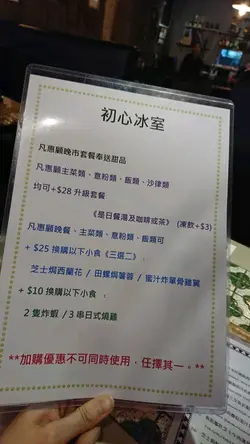 初心冰室
凡惠顧晚市套餐奉送甜品
凡惠顧主菜類、意粉類、飯類、沙律類
均可+$28 升級套餐
《是日餐湯及咖啡或茶》 (凍飲+$3)
凡惠顧晚餐、主菜類、意粉類、飯類可
+ $25 換購以下小食《三選二》
芝士焗西蘭花 / 田螺焗薯蓉 / 蜜汁炸單骨雞翼
+ $10 換購以下小食：
2 隻炸蝦 / 3 串日式燒雞
**加購優惠不可同時使用，任擇其一。**